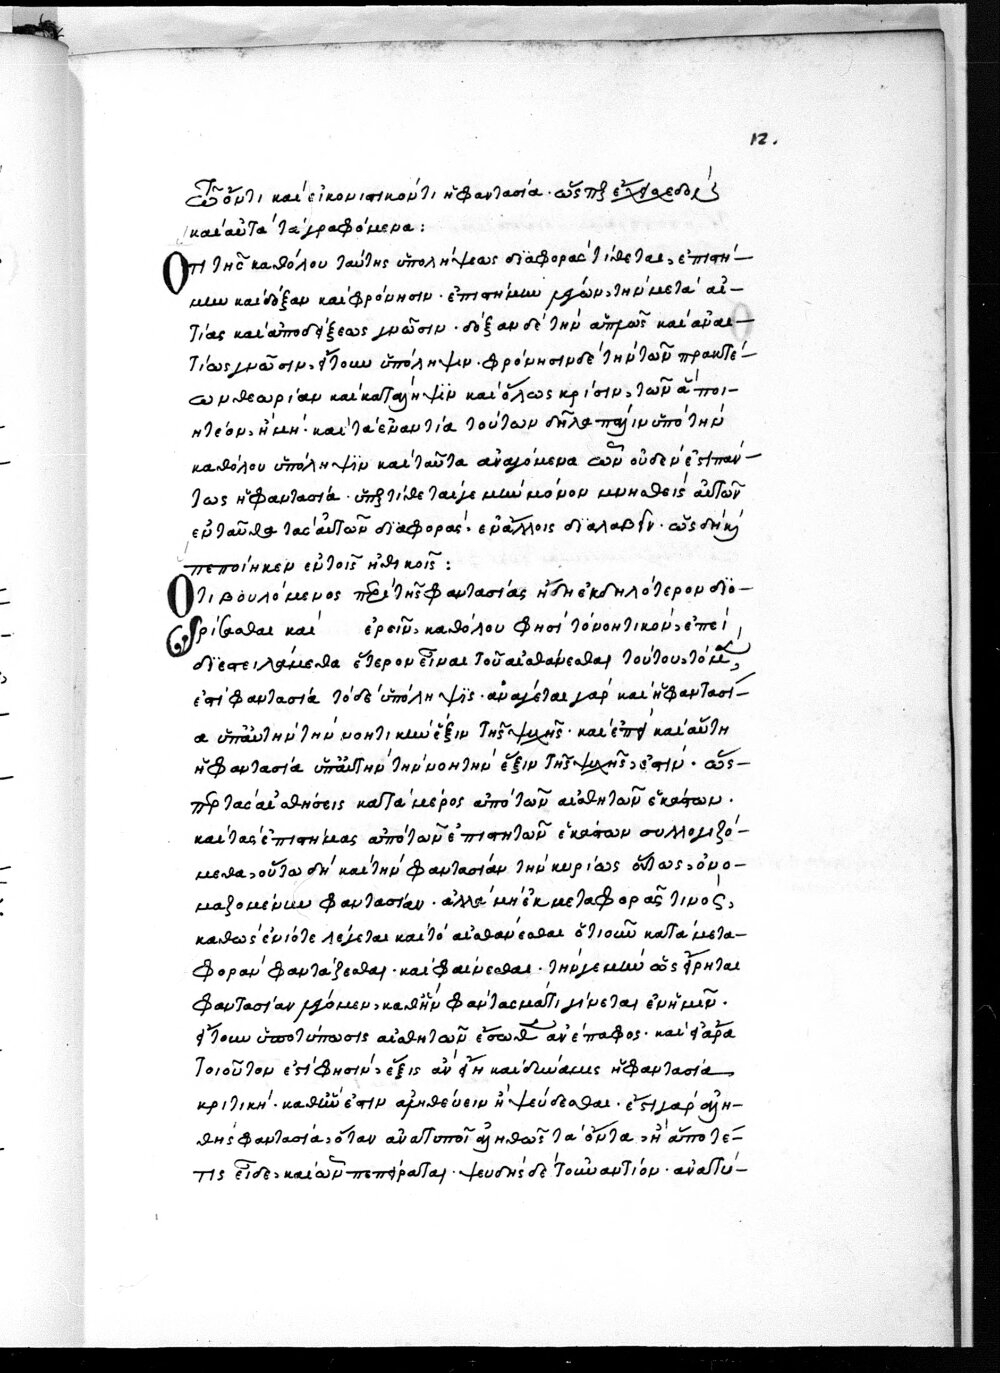 12.
τῶ ὄντι καὶ εἰκονιστικόν τι ἡ φαντασία. ὥσπερ
καὶ αὐτὰ τὰ γραφόμενα:
Ὅτι τῆς καθόλου ταύτης ὑπολήψεως διαφορὰς τίθεται, ἐπιστή-
μην καὶ δόξαν καὶ φρόνησιν. ἐπιστήμην λέγων, τὴν μετὰ αἰ-
τίας καὶ ἀποδείξεως γνῶσιν. δόξαν δὲ τὴν ἁπλῶς καὶ ἀναι-
τίως γνῶσιν, ἤτοι ὑπόληψιν. φρόνησιν δὲ τὴν τῶν πρακτέ-
ων θεωρίαν καὶ κατάληψιν καὶ ὅλως κρίσιν, τῶν ἅ ποι-
ητέον, ἢ μή. καὶ τὰ ἐναντία τούτων δῆλα πάλιν ὑπὸ τὴν
καθόλου ὑπόληψιν καὶ ταῦτα ἀναγόμενα ὧν οὐδέν ἐστι πάν-
τως ἡ φαντασία. ὑπερτίθεται γε μὴν μόνον μνησθεὶς αὐτῶν
ἐνταῦθα τὰς αὐτῶν διαφορὰς, ἐν ἄλλοις διαλαβεῖν. ὡς δὴ καὶ
πεποίηκεν ἐν τοῖς ἠθικοῖς:
Ὅτι βουλόμενος περὶ τῆς φαντασίας ἤδη ἐκδηλότερον διο-
ρίσασθαι καὶ ἐρεῖν, καθόλου φησὶ τὸ νοητικὸν, ἐπεὶ
διεστειλάμεθα ἕτερον εἶναι τοῦ αἰσθάνεσθαι τούτου, τὸ μὲν
ἐστὶ φαντασία τὸ δὲ ὑπόληψις. ἀνάγεται γὰρ καὶ ἡ φαντασί-
α ὑπ' αὐτὴν τὴν νοητικὴν ἕξιν τῆς ψυχῆς. καὶ ἐπεὶ καὶ αὕτη
ἡ φαντασία ὑπ' αὐτὴν τὴν νοητὴν ἕξιν τῆς ψυχῆς, ἐστίν. ὥσ-
περ τὰς αἰσθήσεις κατὰ μέρος ἀπὸ τῶν αἰσθητῶν ἑκάστων.
καὶ τὰς ἐπιστήμας ἀπὸ τῶν ἐπιστητῶν ἑκάστων συλλογιζό-
μεθα, οὕτω δὴ καὶ τὴν φαντασίαν τὴν κυρίως ὄντως, ὀνο-
μαζομένην φαντασίαν. ἀλλὰ μὴ ἐκ μεταφορᾶς τινὸς,
καθὼς ἐνίοτε λέγεται καὶ τὸ αἰσθάνεσθαι ὁτιοῦν κατὰ μετα-
φορὰν φαντάζεσθαι. καὶ φαίνεσθαι. τήν γε μὴν ὡς εἴρηται
φαντασίαν λέγομεν, καθ' ἣν φαντασμά τι γίνεται ἐν ἡμῖν.
ἤτοι ὑποτύπωσις αἰσθητῶν ἔσωθεν ἀνέπαφος. καὶ εἰ ἄρα
τοιοῦτον ἐστὶ φησὶν, ἕξις ἂν εἴη καὶ δύναμις ἡ φαντασία
κριτική. καθ' ἣν ἐστιν ἀληθεύειν ἢ ψεύδεσθαι. ἐστὶ γὰρ ἀλη-
θὴς φαντασία, ὅταν ἀνατυποῖ ἀληθῶς τὰ ὄντα, ἢ ἅ ποτέ
τις εἶδε, καὶ ὧν πεπείραται. ψευδὴς δὲ τοὐναντίον. ἀνατύ-